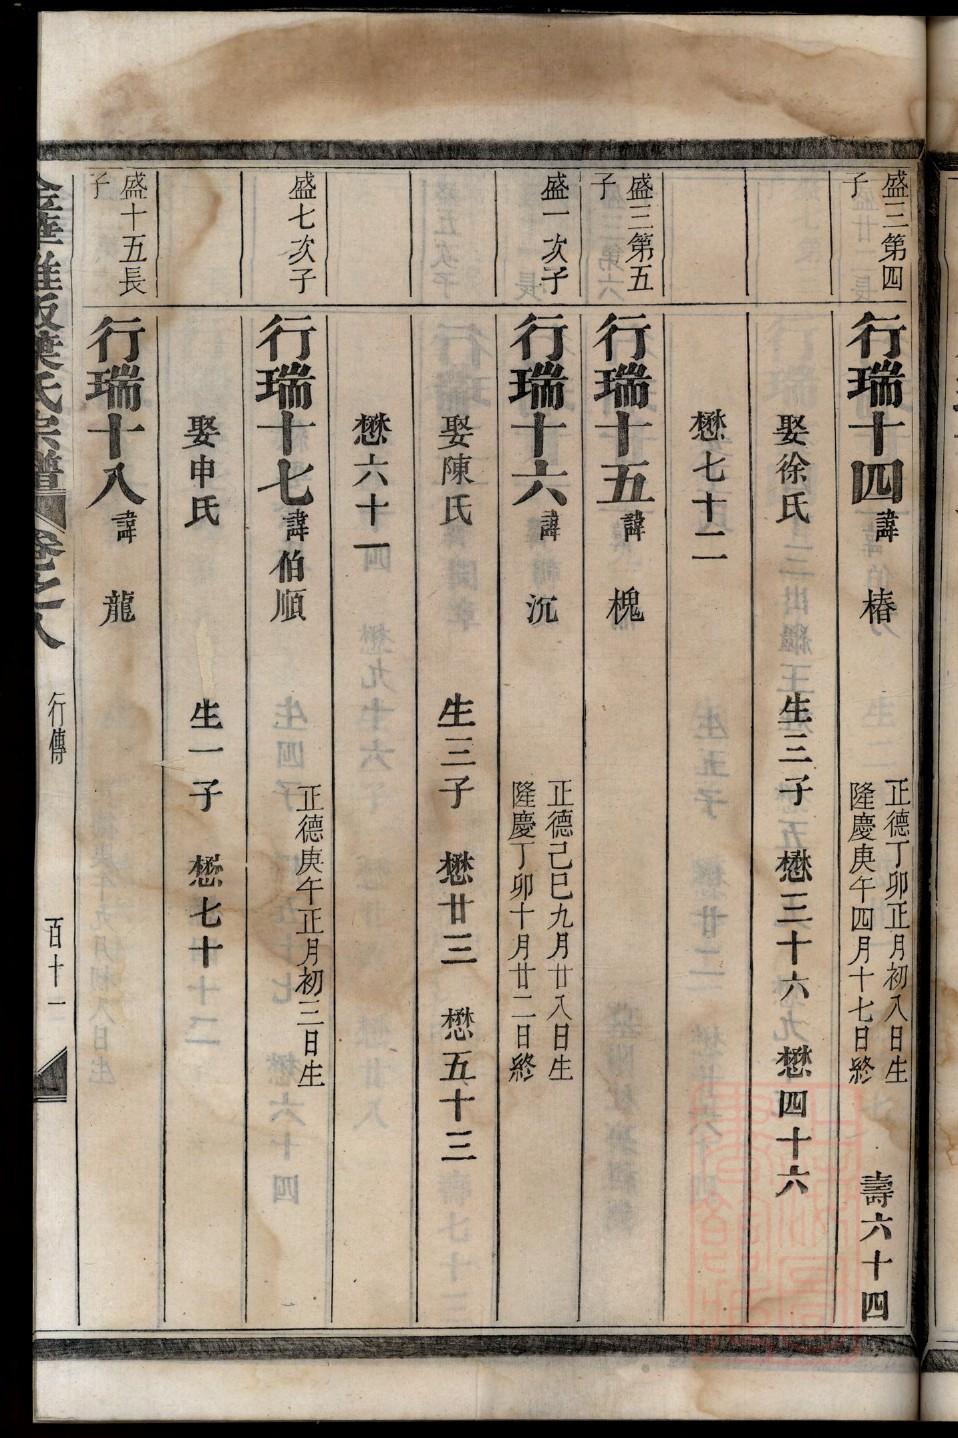 盛三第四子
行瑞十四 諱 椿 正德丁卯正月初八日生 隆慶庚午四月十七日終 壽六十四
娶徐氏 生三子 懋三十六 懋四十六
懋七十二
盛三第五子
行瑞十五 諱 槐
盛一次子
行瑞十六 諱 沉 正德己巳九月廿八日生 隆慶丁卯十月廿二日終
娶陳氏 生三子 懋廿三 懋五十三
懋六十一
盛七次子
行瑞十七 諱伯順 正德庚午正月初三日生
娶申氏 生一子 懋七十
盛十五長子
行瑞十八 諱 龍
氏宗譜 卷之八 行傳 百十一